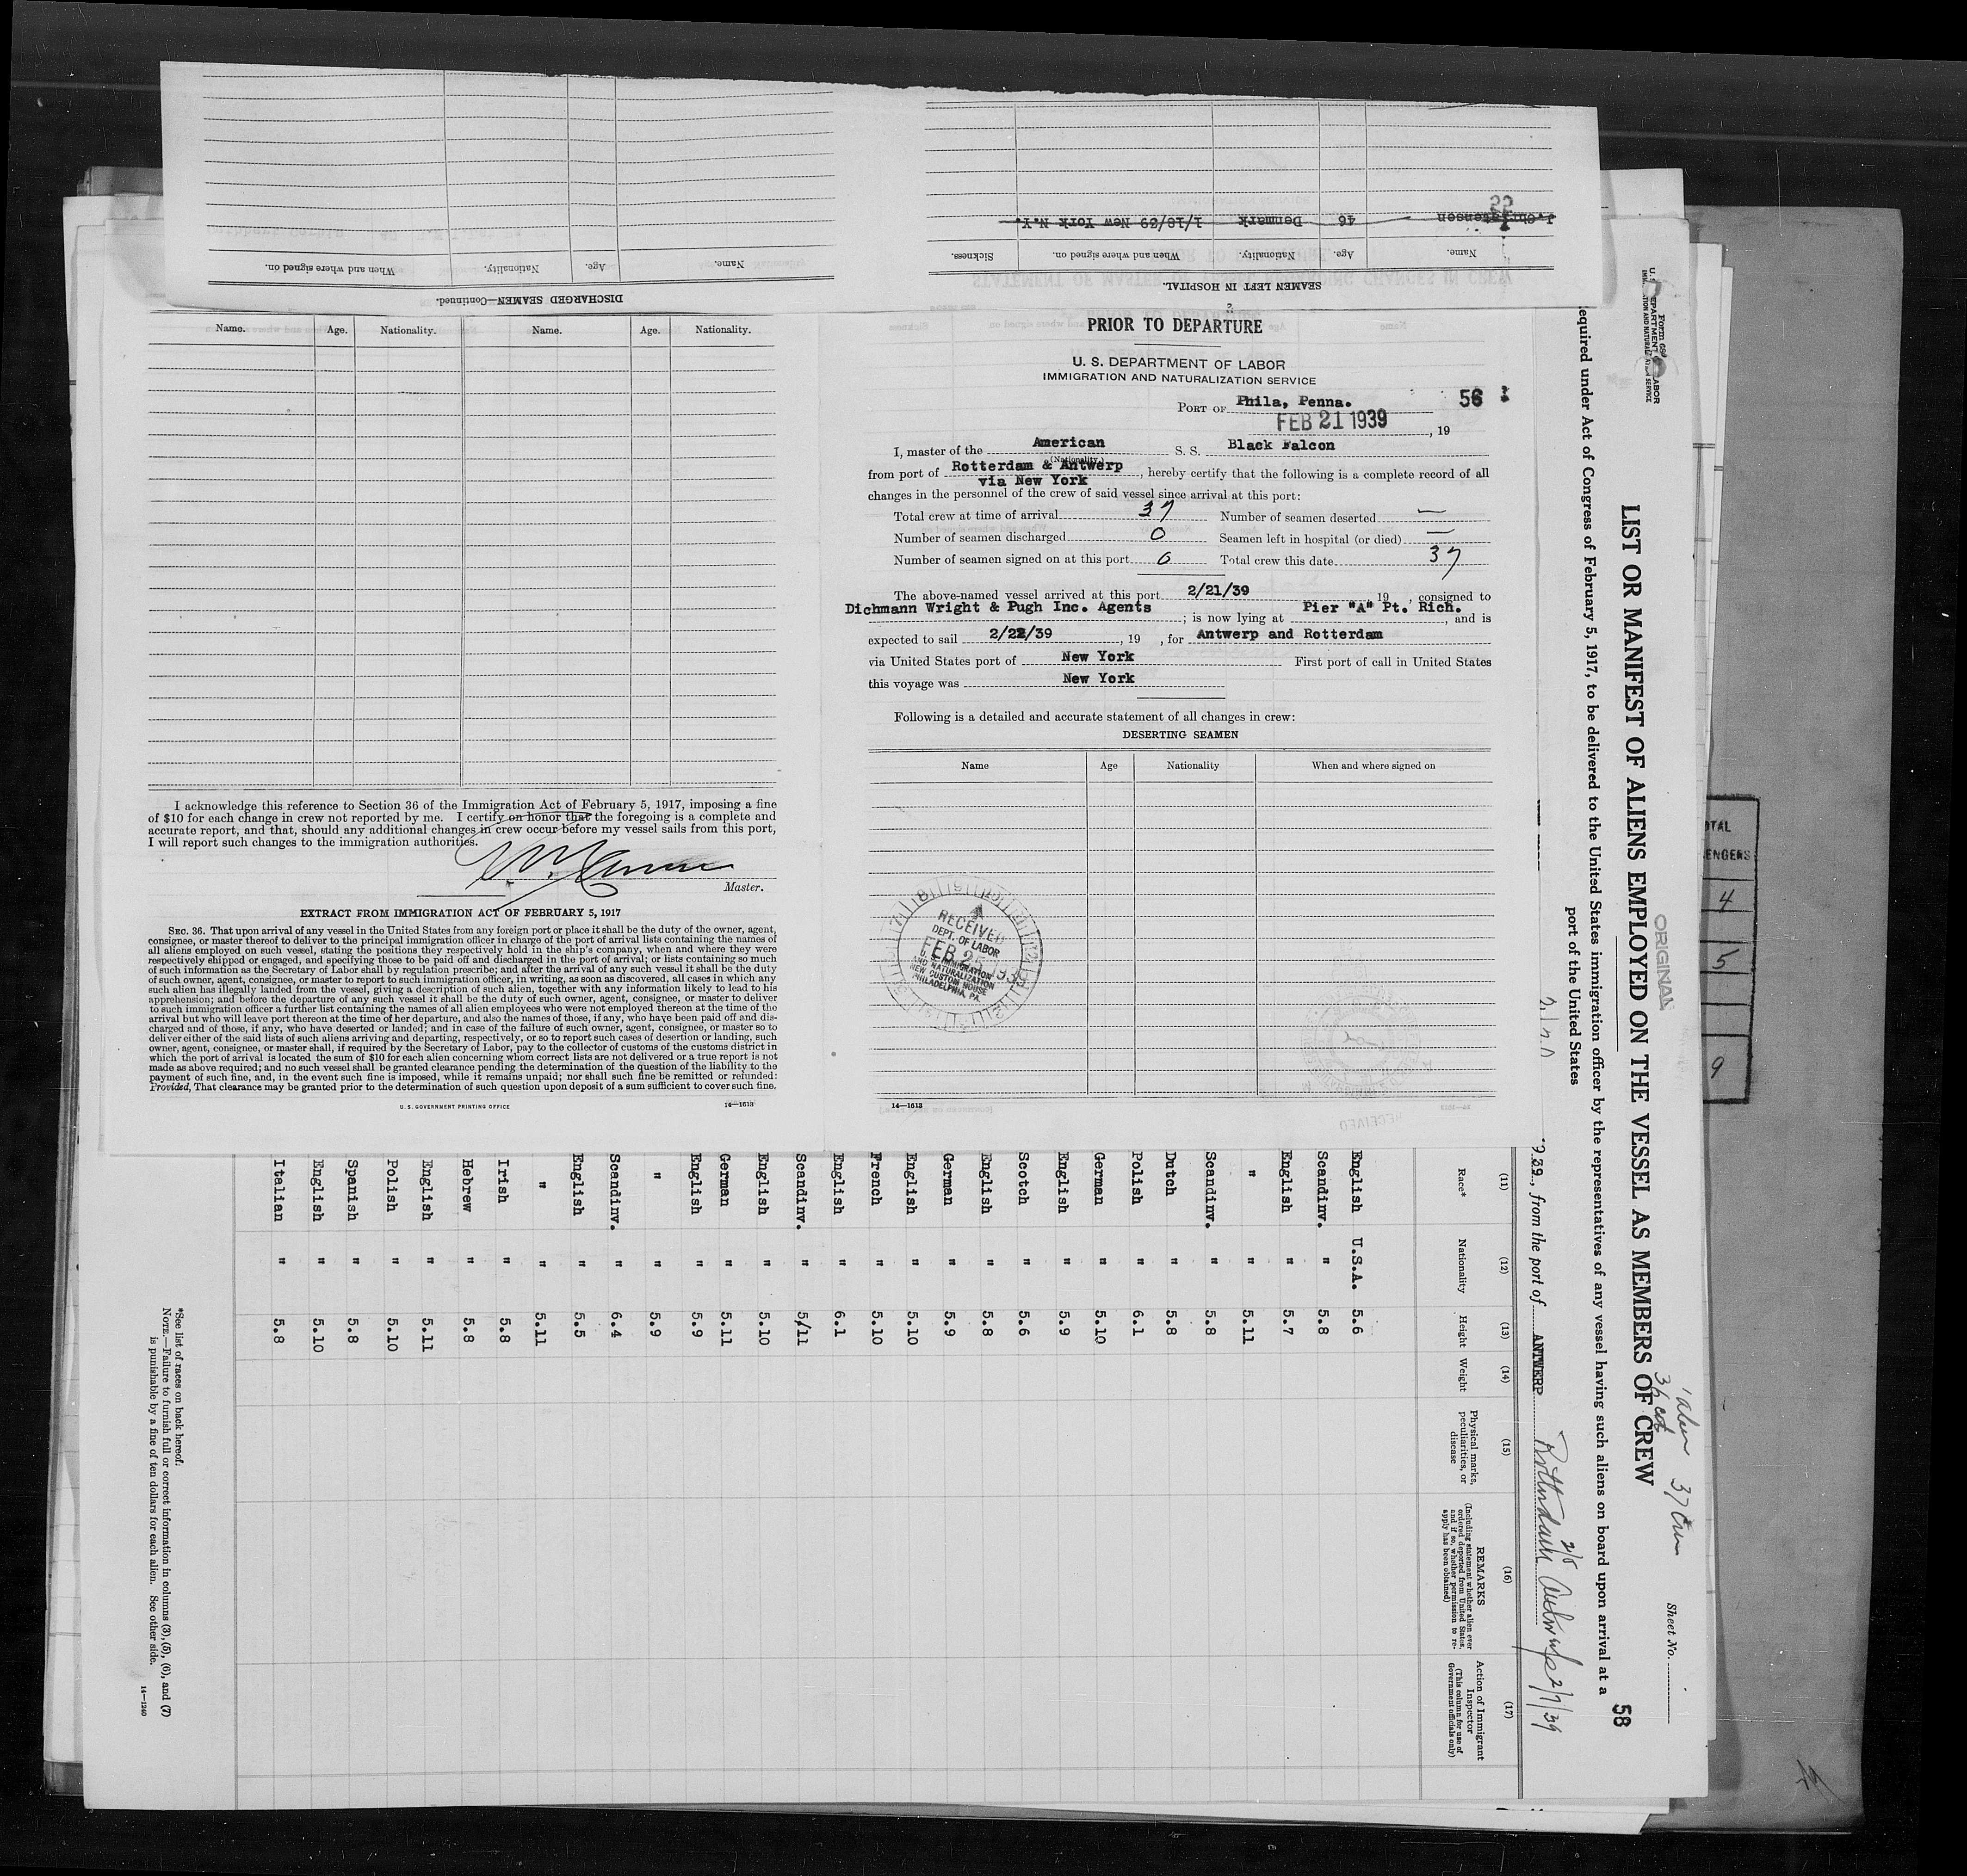 DISCHARGED SEAMEN—Continued.
Name. Age. Nationality. When and where signed on.
SEAMEN LEFT IN HOSPITAL.
Name. Age. Nationality. When and where signed on. Sickness.
J. Christensen 46 Denmark 1/18/39 New York N.Y.
22
Name. Age. Nationality. Name. Age. Nationality.
I acknowledge this reference to Section 36 of the Immigration Act of February 5, 1917, imposing a fine
of $10 for each change in crew not reported by me. I certify on honor that the foregoing is a complete and
accurate report, and that, should any additional changes in crew occur before my vessel sails from this port,
I will report such changes to the immigration authorities.
Master.
EXTRACT FROM IMMIGRATION ACT OF FEBRUARY 5, 1917
SEC. 36. That upon arrival of any vessel in the United States from any foreign port or place it shall be the duty of the owner, agent,
consignee, or master thereof to deliver to the principal immigration officer in charge of the port of arrival lists containing the names of
all aliens employed on such vessel, stating the positions they respectively hold in the ship's company, when and where they were
respectively shipped or engaged, and specifying those to be paid off and discharged in the port of arrival; or lists containing so much
of such information as the Secretary of Labor shall by regulation prescribe; and after the arrival of any such vessel it shall be the duty
of such owner, agent, consignee, or master to report to such immigration officer, in writing, as soon as discovered, all cases in which any
such alien has illegally landed from the vessel, giving a description of such alien, together with any information likely to lead to his
apprehension; and before the departure of any such vessel it shall be the duty of such owner, agent, consignee, or master to deliver
to such immigration officer a further list containing the names of all alien employees who were not employed thereon at the time of the
arrival but who will leave port thereon at the time of her departure, and also the names of those, if any, who have been paid off and dis-
charged and of those, if any, who have deserted or landed; and in case of the failure of such owner, agent, consignee, or master so to
deliver either of the said lists of such aliens arriving and departing, respectively, or so to report such cases of desertion or landing, such
owner, agent, consignee, or master shall, if required by the Secretary of Labor, pay to the collector of customs of the customs district in
which the port of arrival is located the sum of $10 for each alien concerning whom correct lists are not delivered or a true report is not
made as above required; and no such vessel shall be granted clearance pending the determination of the question of the liability to the
payment of such fine, and, in the event such fine is imposed, while it remains unpaid; nor shall such fine be remitted or refunded:
Provided, That clearance may be granted prior to the determination of such question upon deposit of a sum sufficient to cover such fine.
U. S. GOVERNMENT PRINTING OFFICE 14—1613
PRIOR TO DEPARTURE
U. S. DEPARTMENT OF LABOR
IMMIGRATION AND NATURALIZATION SERVICE
PORT OF Phila, Penna. 56
FEB 21 1939, 19
I, master of the American S. S. Black Falcon
(Nationality)
from port of Rotterdam & Antwerp, hereby certify that the following is a complete record of all
via New York
changes in the personnel of the crew of said vessel since arrival at this port:
Total crew at time of arrival 37 Number of seamen deserted —
Number of seamen discharged 0 Seamen left in hospital (or died) —
Number of seamen signed on at this port 0 Total crew this date 37
The above-named vessel arrived at this port 2/21/39 19 , consigned to
Dichmann Wright & Pugh Inc. Agents; is now lying at Pier "A" Pt. Rich., and is
expected to sail 2/22/39, 19 , for Antwerp and Rotterdam
via United States port of New York First port of call in United States
this voyage was New York
Following is a detailed and accurate statement of all changes in crew:
DESERTING SEAMEN
Name Age Nationality When and where signed on
RECEIVED
DEPT. OF LABOR
FEB 25 1939
U. S. IMMIGRATION
AND NATURALIZATION
NEW CUSTOM HOUSE
PHILADELPHIA, PA.
14—1613
Form 689
U. S. DEPARTMENT OF LABOR
IMMIGRATION AND NATURALIZATION SERVICE
ORIGINAL
37 Crew
Sheet No.
LIST OR MANIFEST OF ALIENS EMPLOYED ON THE VESSEL AS MEMBERS OF CREW
58
equired under Act of Congress of February 5, 1917, to be delivered to the United States immigration officer by the representatives of any vessel having such aliens on board upon arrival at a
port of the United States
939, from the port of ANTWERP Rotterdam 2/5 Antwerp 2/7/39
(11) (12) (13) (14) (15) (16) (17)
Race* Nationality Height Weight Physical marks, peculiarities, or disease REMARKS (Including statement whether alien ever ordered deported from United States, and if so, whether permission to re-apply has been obtained) Action of Immigrant Inspector (This column for use of Government officials only)
English U.S.A. 5.6
Scandinv. " 5.8
English " 5.7
" " 5.11
Scandinv. " 5.8
Dutch " 5.8
Polish " 6.1
German " 5.10
English " 5.9
Scotch " 5.6
English " 5.8
German " 5.9
English " 5.10
French " 5.10
English " 6.1
Scandinv. " 5/11
English " 5.10
German " 5.11
English " 5.9
" " 5.9
Scandinv. " 6.4
English " 5.5
" " 5.11
Irish " 5.8
Hebrew " 5.8
English " 5.11
Polish " 5.10
Spanish " 5.8
English " 5.10
Italian " 5.8
*See list of races on back hereof.
NOTE.—Failure to furnish full or correct information in columns (3), (5), (6), and (7)
is punishable by a fine of ten dollars for each alien. See other side.
14—1240
OTAL
ENGERS
4
5
9